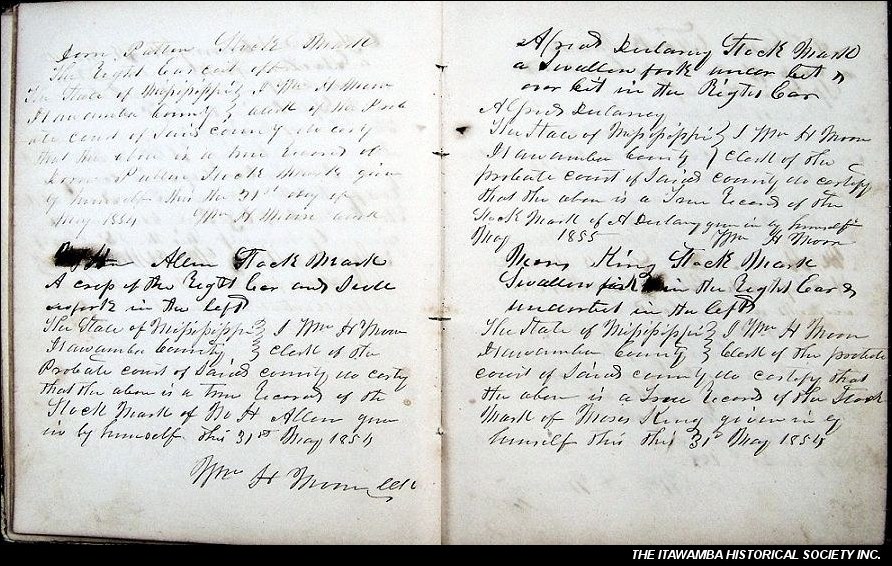 Stock Mark
The Right Ear cut off
The State of Mississippi } I Wm H Moore
Itawamba County } clerk of the Prob
ate court of Said county do certify
that the above is a true Record of
Stock Mark given
by himself this the 31st day of
May 1854 Wm H Moore clerk
Allen Stock Mark
A crop of the Right Ear and
in the left
The State of Mississippi } I Wm H Moore
Itawamba County } clerk of the
Probate court of Said county do certify
that the above is a true Record of the
Stock Mark of H Allen given
in by himself this 31st May 1854
Wm H Moore clk
Alfred Dulaney Stock Mark
a Swallow fork under bit &
over bit in the Right Ear
Alfred Dulaney
The State of Mississippi } I Wm H Moore
Itawamba County } clerk of the
probate court of Said county do certify
that the above is a True Record of the
Stock Mark of A Dulaney given in by himself
May 1855 Wm H Moore
Moses King Stock Mark
Swallow fork in the Right Ear &
underbit in the left
The State of Mississippi } I Wm H Moore
Itawamba County } Clerk of the probate
court of Said county do certify that
the above is a True Record of the Stock
Mark of Moses King given in by
himself this this 31st May 1854
THE ITAWAMBA HISTORICAL SOCIETY INC.